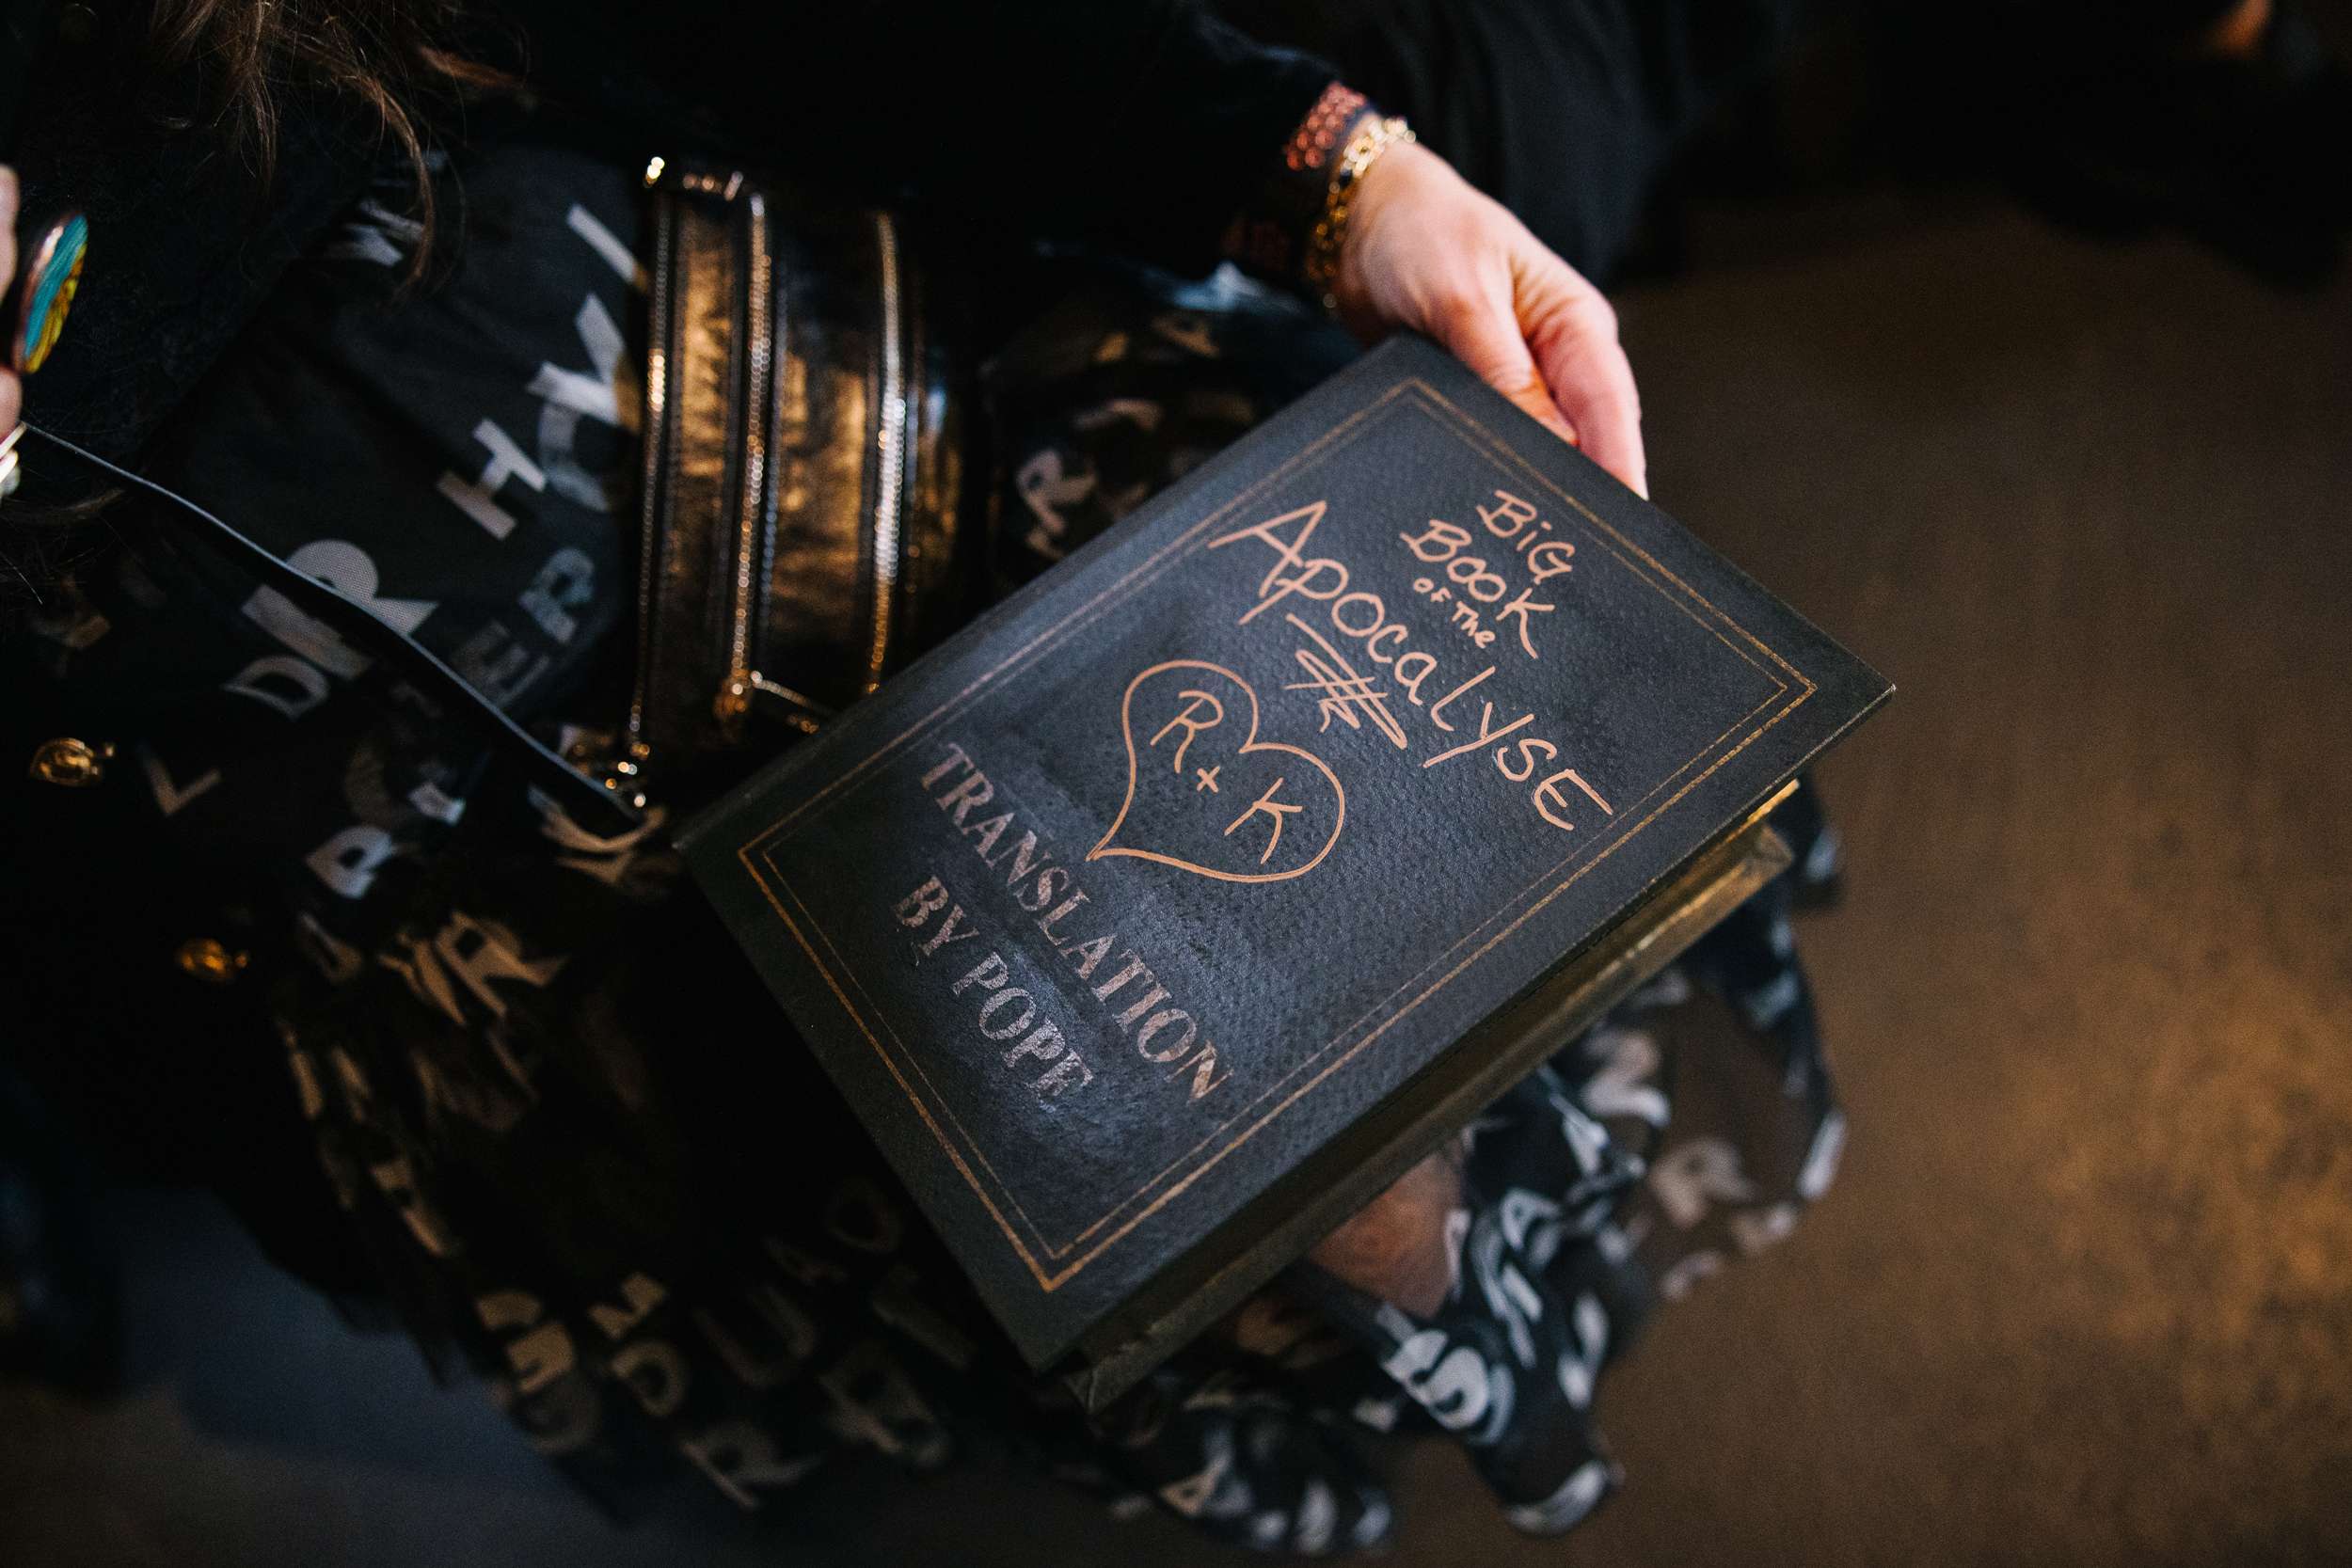 BiG
BOOK
OF The
APOCalYSE
R + K
TRANSLATION
BY POPE